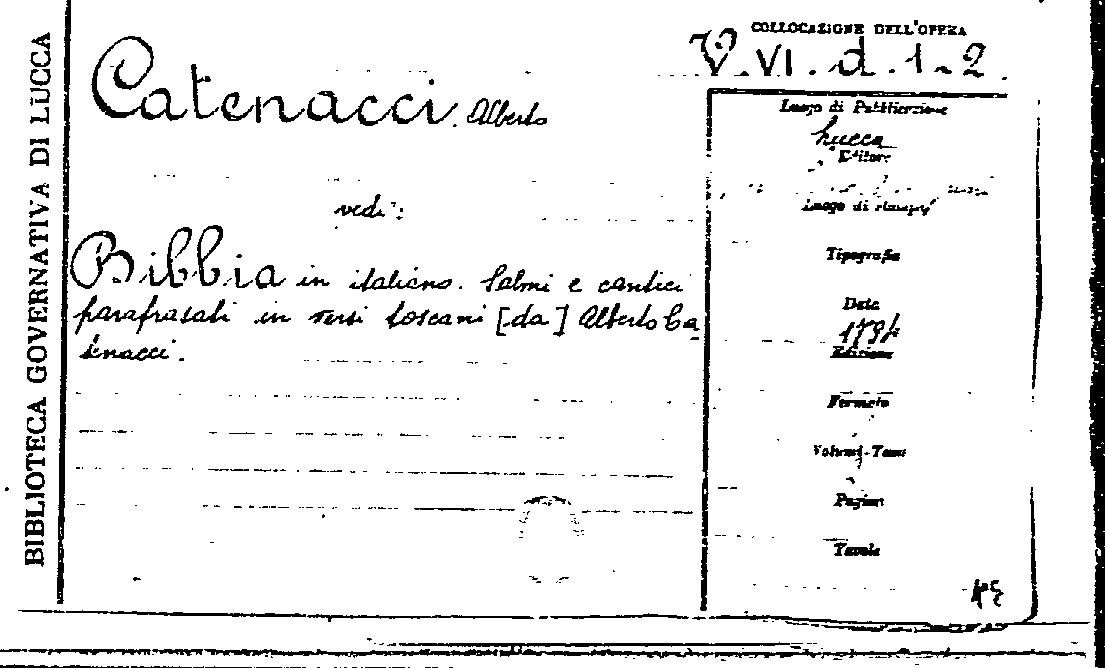 BIBLIOTECA GOVERNATIVA DI LUCCA
COLLOCAZIONE DELL'OPERA
V. VI. d. 1-2.
Catenacci Alberto
vedi:
Bibbia in italiano. Salmi e cantici
parafrasati in versi toscani [da] Alberto Ca
tenacci.
Luogo di Pubblicazione
Lucca
Editore
Luogo di stampa
Tipografia
Data
Edizione
Formato
Volumi-Tomi
Pagine
Tavole